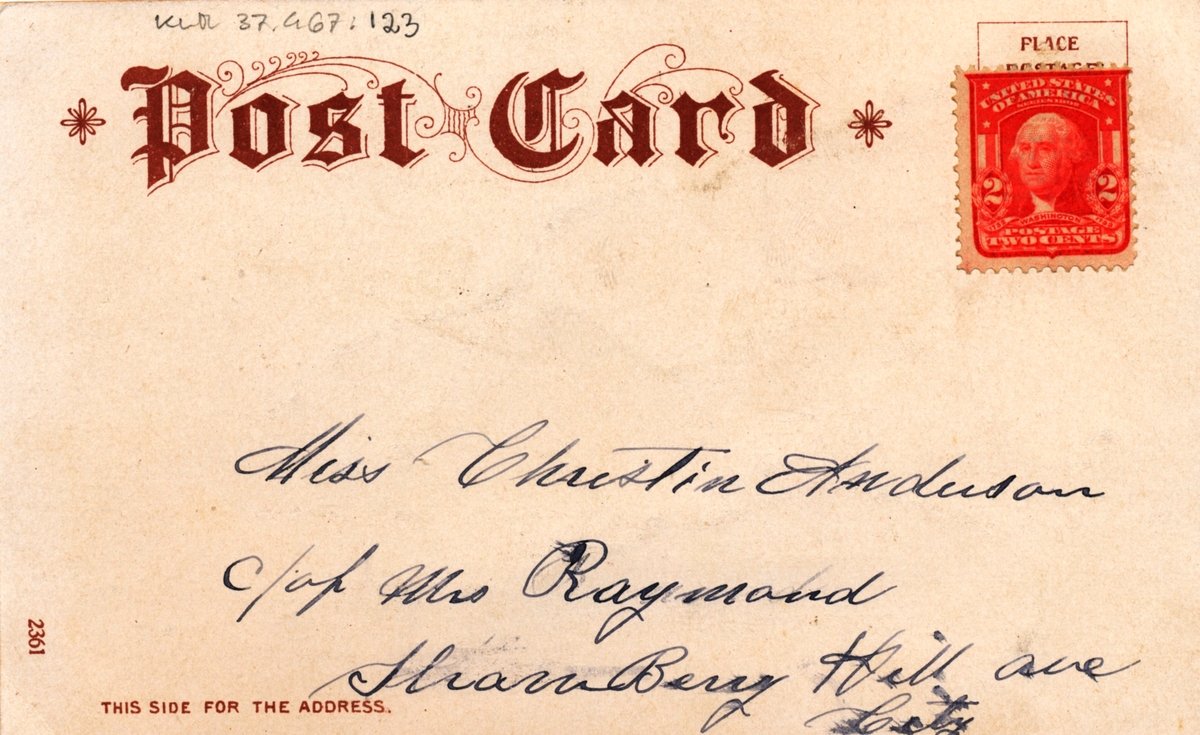 37.467:123
Post Card
PLACE
POSTAGE
UNITED STATES
OF AMERICA
2 2
WASHINGTON
POSTAGE
TWO CENTS
Miss Christin Anderson
c/of Mrs Raymond
Berry Hill ave
City
2361
THIS SIDE FOR THE ADDRESS.